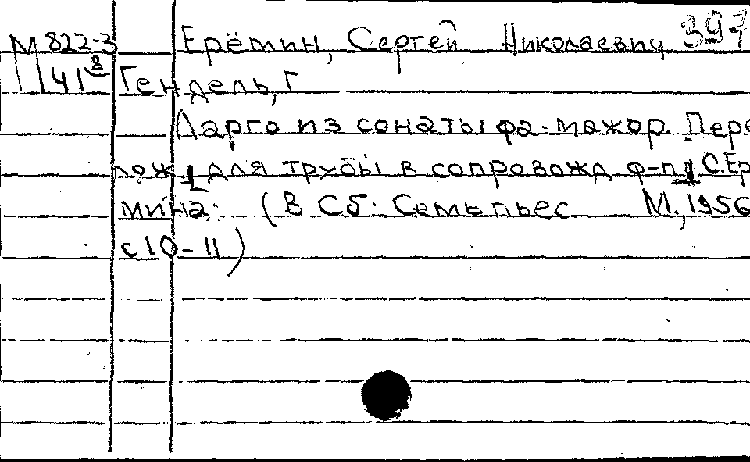 М 822-3 Ерёмин, Сергей Николаевич 397
141 8 Гендель, Г
Ларго из сонаты фа-мажор. Пере
лож. для трубы в сопровожд ф-п. С.Ер
мина: (В Сб: Семь пьес М, 1956
с 10-11)